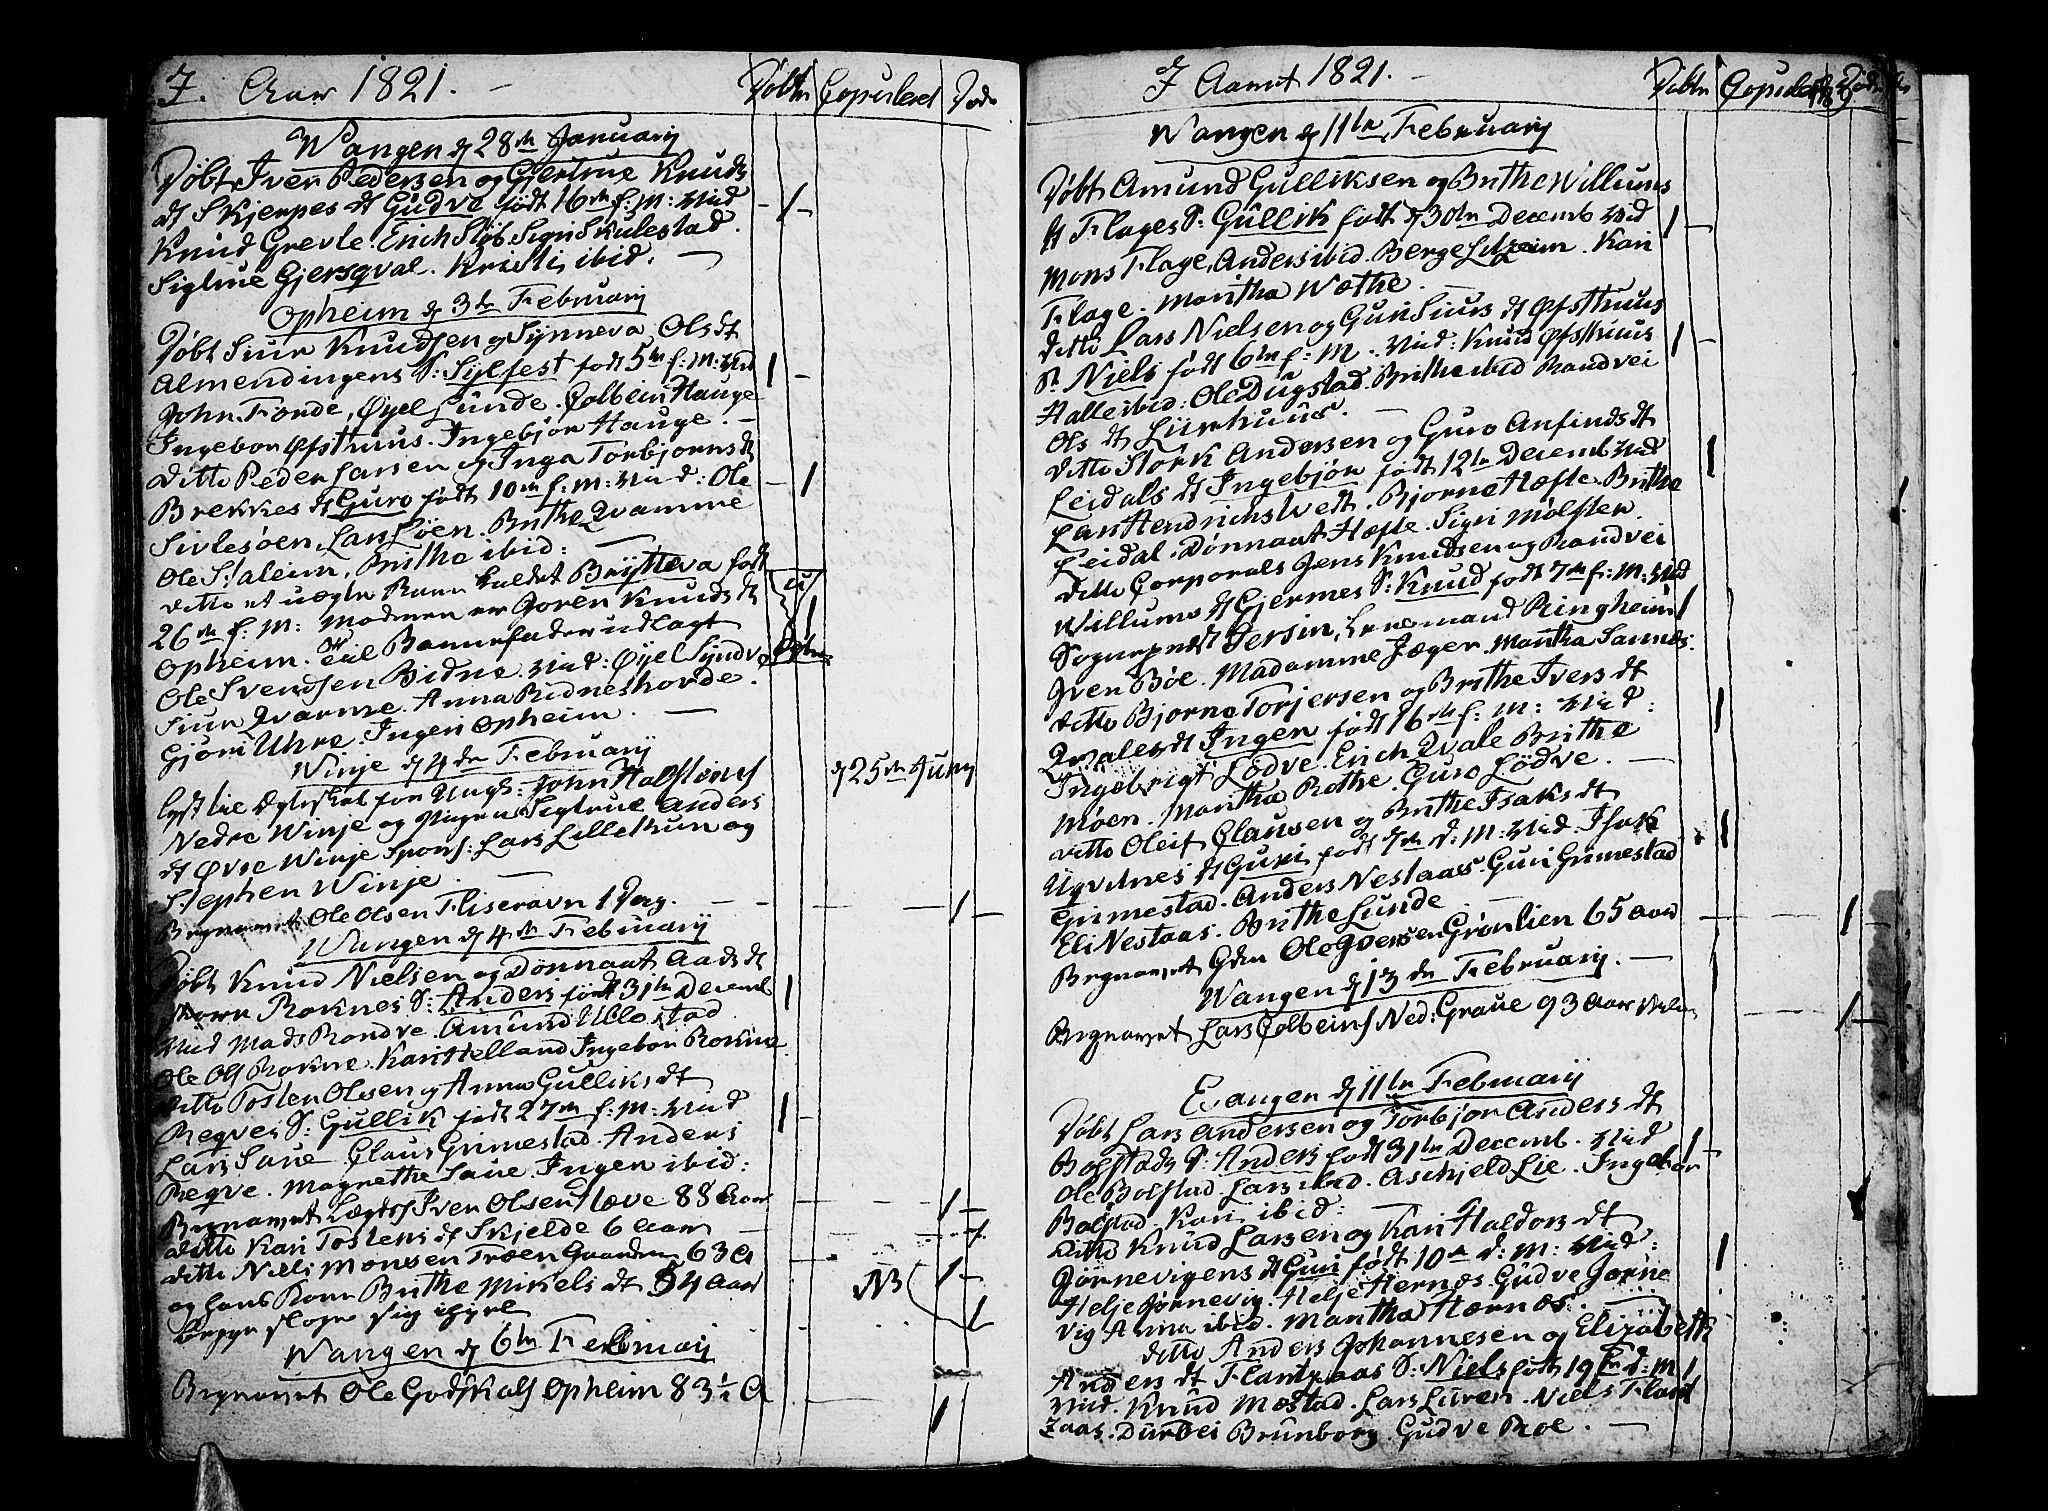 I. Aar 1821. Døbte Copuleret Døde
Wangen d 28de January
Døbt Iver Pedersen og Gjertrue Knuds
dt Skjerpes dt Gudve født 16de f: M: Vid
Knud Grevle. Erich Sløb Sygn Skulestad.
Sigtrue Gjersqval. Kristi ibid.
Opheim d 3de February
Døbt Siur Knudsen og Synneva Ols dt
Almendingens S: Sylfest født 5te f: M: Vid
John Fonde, Øyel Lunde. Colbein Hauge
Ingebor Øfsthuus. Ingebjør Hauge.
Ditto Peder Larsen og Inga Torbjørns dt
Brekkes dt Guro født 10de f: M: Vid: Ole
Sivlesøen, Lars Løen. Brithe Qvamme
Ole Staleim, Brithe ibid:
Ditto et uægte Barn kaldet Brytteva født
26de f: M: Moderen er Joren Knuds dt
Opheim. til Barnefader udlagt
Ole Svendsen Bidne. Vid: Øyel Syndve
Siur Qvarme. Anna Bidneshorde.
Gjøri Uhre. Ingeri Opheim.
Winje d 4de February
lyst til Ægteskab for Ungk: John Halstens d 25de Juny
Nedre Winje og Pigen Sigtrue Anders
dt Øvre Winje Spons: Lars Lillethun og
Stephen Winje.
Begravet Ole Olsen Fliseravn 1 Dag.
Wangen d 4de February
Døbt Knud Nielsen og Dønnaat Aads dt
Roknes S: Anders født 31te Decemb
Vid Mads Rondve. Amund Ullestad
Ole Ols Rokne. Kari Helland Ingebor Rokne.
Ditto Tosten Olsen og Anna Gulliks dt
Reqves S: Gullik født 27de f: M: Vid
Lars Saue. Claus Grimestad. Anders
Reqve. Magrethe Saue. Ingen ibid:
Begravet Lægds Iver Olsen Fløve 88 Aar
Ditto Kari Tostens dt Skjelde 6 Aar
Ditto Nelli Monsen Træen Gaarden 63 A
og hans Kone Brithe Mikels dt 54 Aar NB
begge sloge sig ihjel
Wangen d 6te February
Begravet Ole Godskalks Opheim 83½ A
I Aaret 1821. Døbte Copuleret Døde
Wangen d 11te February
Døbt Amund Gulliksen og Brithe Willums
dt Flages S: Gullik født d 30te Decemb Vid
Mons Flage, Anders ibid. Berge Litzeim. Kari
Flage. Maritha Wæthe.
Ditto Lars Nielsen og Guri Siurs dt Øfsthuus
S. Niels født 6te f: M. Vid: Knud Øfsthuus
Halle ibid: Ole Dugstad. Brithe ibid Randvei
Ols dt Liirhuus.
Ditto Størk Andersen og Guro Anfinds dt
Leidals dt Ingebjør født 12te Decemb Vid
Lars Hendrichs Tvedt. Bjørne Hæfte. Brithe
Leidal. Dønnaat Hæfte. Sigri Mølster.
Ditto Corporals Jens Knudsen og Randvei
Willums dt Gjermes S: Knud født 7de f: M: Vid
Sognepræst Jersin, Lensmand Ringheim
Iver Bøe. Madamme Jæger. Maritha Saunæs.
Ditto Bjørne Torjersen og Brithe Ivers dt
Qvales dt Ingen født 16de f: M: Vid:
Ingebrigt Lødve. Erich Qvale Brithe
Møen. Maritha Rothe. Guro Lødve.
Ditto Oleif Clausen og Brithe Isaks dt
dt Guri født 7de d: M: Vid. Isak
Grimestad. Anders Nestaas. Guri Grimestad
Eli Nestaas. Brithe Lunde
Begravet Gdm Ole Iversen Grønlien 65 Aar
Wangen d 13de February.
Begravet Lars Colbeins Ned: Graue 93 Aar
Evangen d 11te February
Døbt Lars Andersen og Torbjør Anders dt
Bolstads S: Anders født 31te Decemb. Vid
Ole Bolstad. Lars ibid. Aschjeld Lie. Ingebor
Bolstad. Kari ibid:
Ditto Knud Larsen og Kari Haldors dt
Jørnevigens dt Guri født 10de d: M: Vid:
Helje Jørnevig. Helje Hernæs. Gudve Jørne
vig Anna ibid. Maritha Hærnæs.
Ditto Anders Johannesen og Elizabeth
Anders dt Flantzaas S: Niels født 19de d: M
Vid. Knud Mestad. Lars Liiren. Niels Flant
zaas. Durdei Brunborg. Gudve Roe.